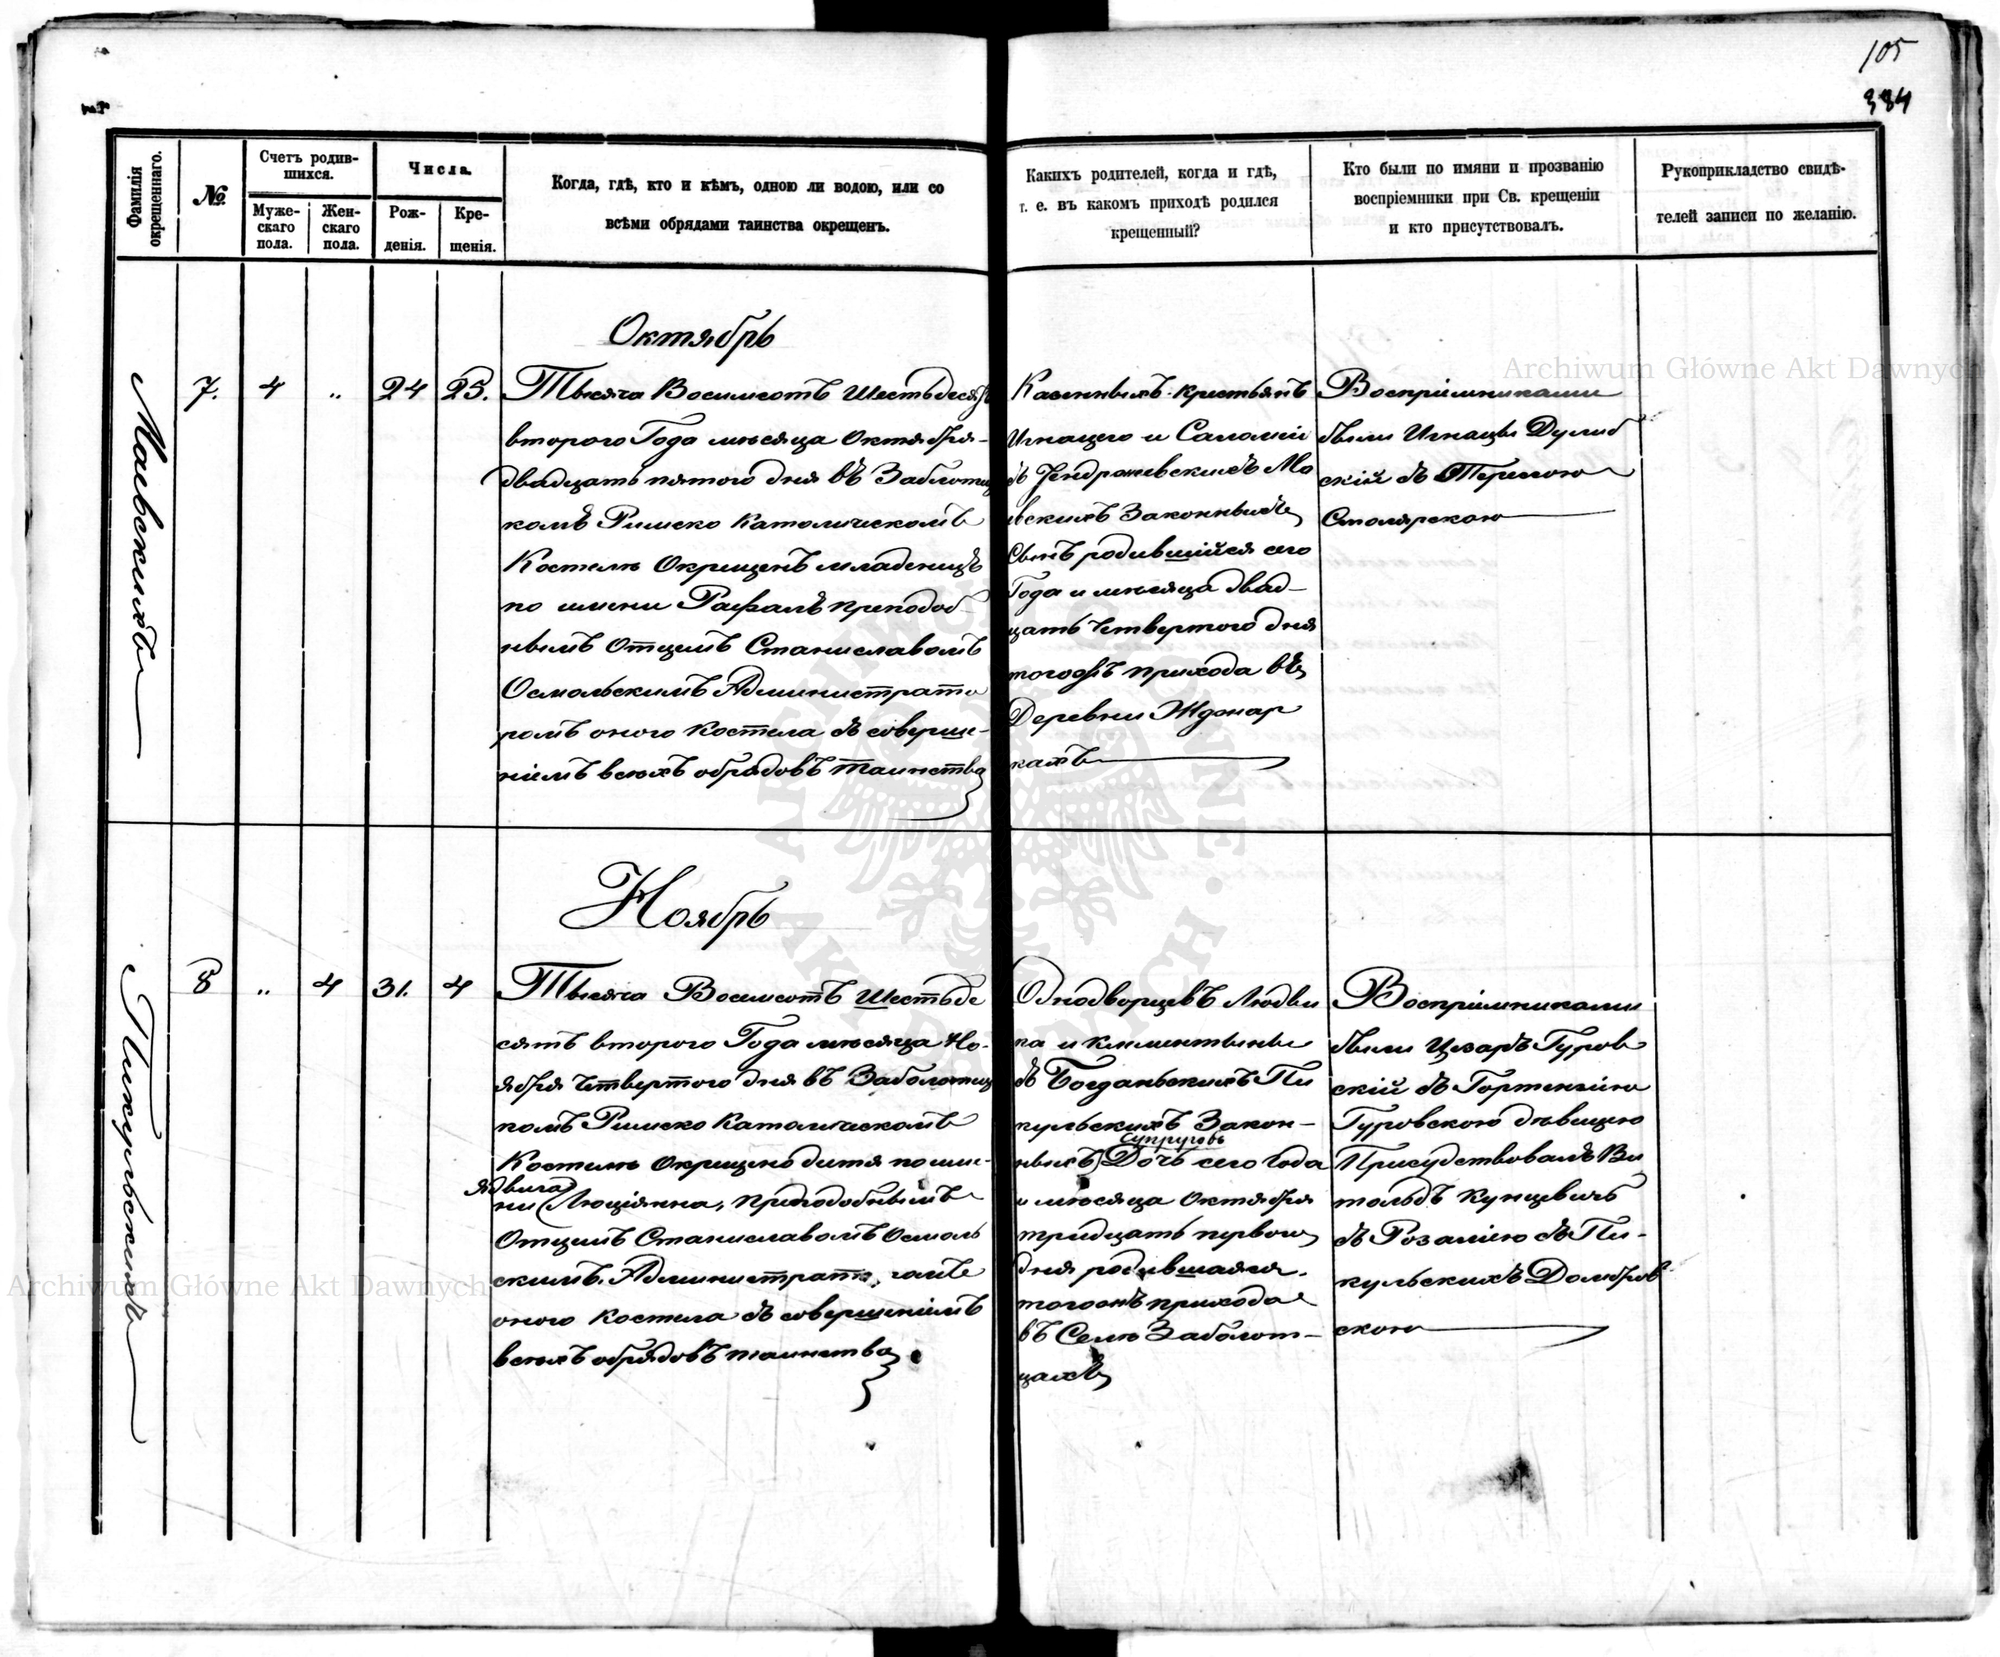 105
384
Фамилія окрещеннаго.
№.
Счетъ родив-
шихся.
Муже-
скаго
пола.
Жен-
скаго
пола.
Числа.
Рож-
денія.
Кре-
щенія.
Когда, гдѣ, кто и кѣмъ, одною ли водою, или со
всѣми обрядами таинства окрещенъ.
Какихъ родителей, когда и гдѣ,
т. е. въ какомъ приходѣ родился
крещенный?
Кто были по имяни и прозванію
воспріемники при Св. крещеніи
и кто присутствовалъ.
Рукоприкладство свидѣ-
телей записи по желанію.
Октябрь
Маевскихъ
7.
4
„
24
25.
Тысяча Восимсотъ Шестьдесятъ
втораго Года мѣсяца Октября
двадцать пятого дня въ Заблотиц
комъ Римско Католическомъ
Костелѣ Окрещенъ младенецъ
по имени Рафалъ преподоб
нымъ Отцемъ Станиславомъ
Осмольскимъ Администрато
ромъ оного Костела съ соверше-
ніемъ всѣхъ обрядовъ таинства
Казенныхъ крестьянъ
Игнацего и Саломеи
съ Ендржеевскихъ Ма
евскихъ Законныхъ
Сынъ родившійся сего
Года и мѣсяца двад-
цать четвертого дня
тогожъ прихода въ
Деревни Жджар
кахъ
Воспріемниками
были Игнацы Дулиб
скій съ Терезою
Столярскою
Ноябрь
Пикульскихъ
8
„
4
31.
4
Тысяча Восемсотъ Шестьде
сятъ второго Года мѣсяца Но-
ября четвертого дня въ Заболотиц
комъ Римско Католическомъ
Костелѣ Окрещено дитя по име-
ядвига
ни Люціянна, преподобнымъ
Отцемъ Станиславомъ Осмоль
скимъ Администрато,
оного Костела съ совершеніемъ
всѣхъ обрядовъ таинства
Однодворцевъ Людви
ка и Клементыны
съ Богданьскихъ Пи
кульскихъ Закон-
Супруговъ
ныхъ Дочь сего Года
и мѣсяца Октября
тридцать первого
дня родившаяся.
тогожъ прихода
въ Селѣ Заболот-
цахъ
Воспріемниками
были Цезаръ Гуров
скій съ Гортензіею
Гуровскою дѣвицею
Присудствовалъ Ви
тольдъ Кунцевичъ
съ Розаліею съ Пи-
кульскихъ Домбров
скою
Archiwum Główne Akt Dawnych
Archiwum Główne Akt Dawnych
ARCHIWUM GŁÓWNE AKT DAWNYCH